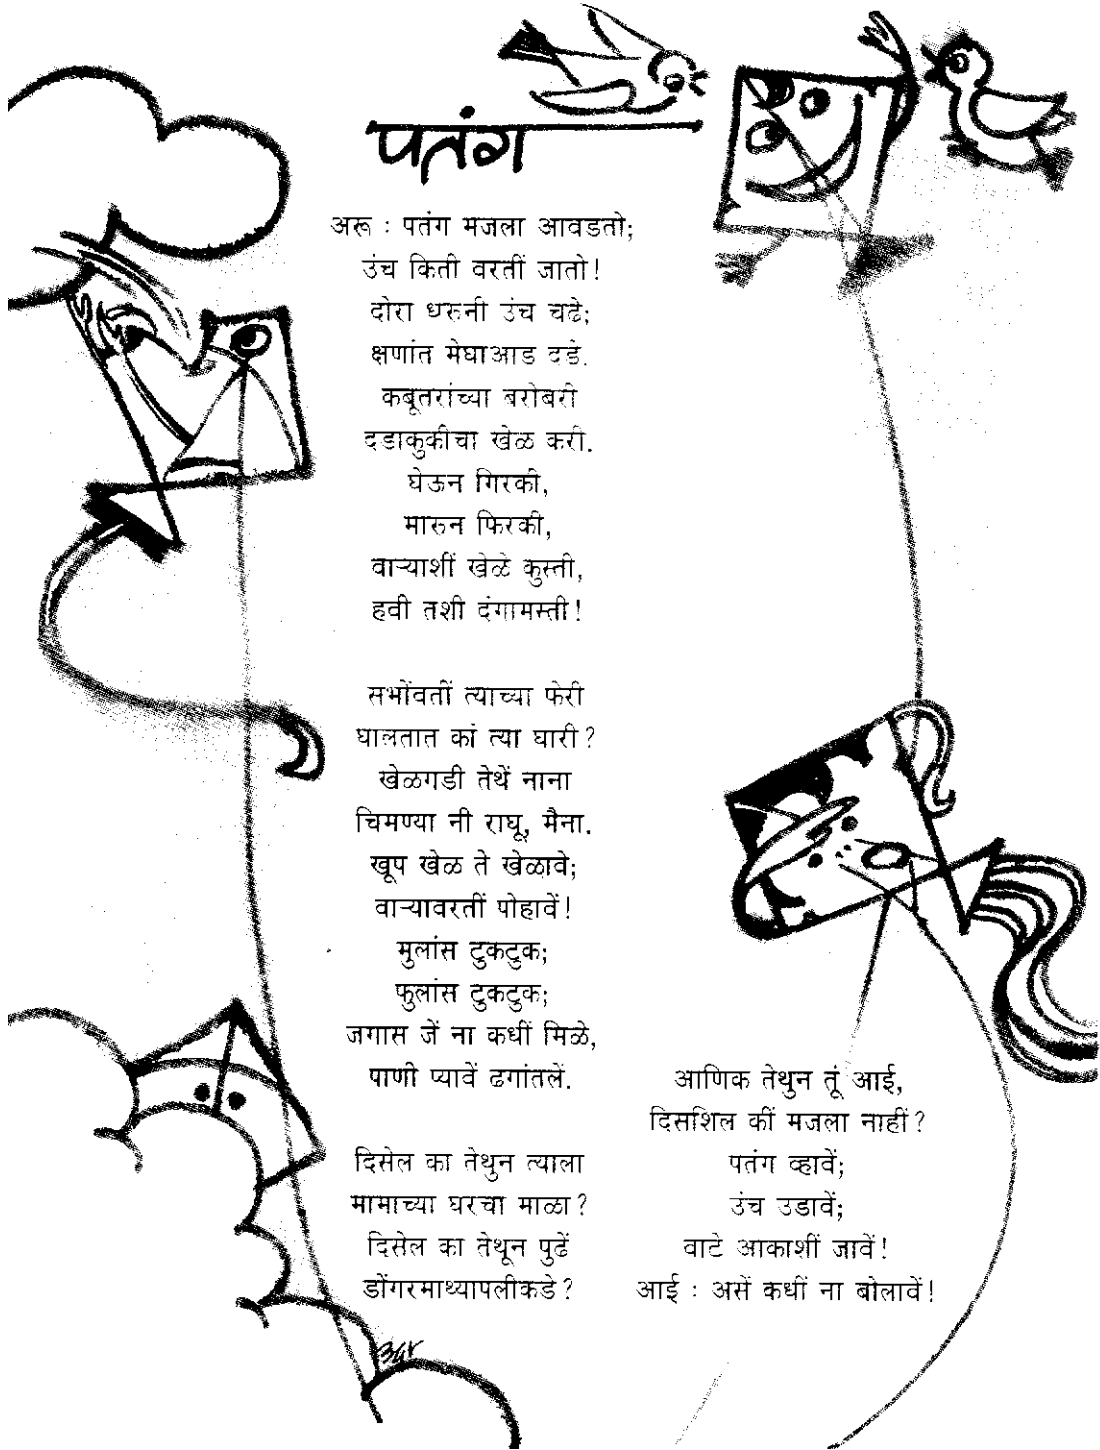 पतंग
अरू : पतंग मजला आवडतो;
उंच किती वरतीं जातो!
दोरा धरुनी उंच चढे;
क्षणांत मेघाआड दडे.
कबूतरांच्या बरोबरी
दडाकुकीचा खेळ करी.
घेऊन गिरकी,
मारुन फिरकी,
वाऱ्याशीं खेळे कुस्ती,
हवी तशी दंगामस्ती!
सभोंवतीं त्याच्या फेरी
घालतात कां त्या घारी?
खेळगडी तेथें नाना
चिमण्या नी राघू, मैना.
खूप खेळ ते खेळावे;
वाऱ्यावरतीं पोहावें!
मुलांस टुकटुक;
फुलांस टुकटुक;
जगास जें ना कधीं मिळे,
पाणी प्यावें ढगांतलें.
दिसेल का तेथुन त्याला
मामाच्या घरचा माळा?
दिसेल का तेथून पुढें
डोंगरमाथ्यापलीकडे?
आणिक तेथुन तूं आई,
दिसशिल कीं मजला नाहीं?
पतंग व्हावें;
उंच उडावें;
वाटे आकाशीं जावें!
आई : असें कधीं ना बोलावें!